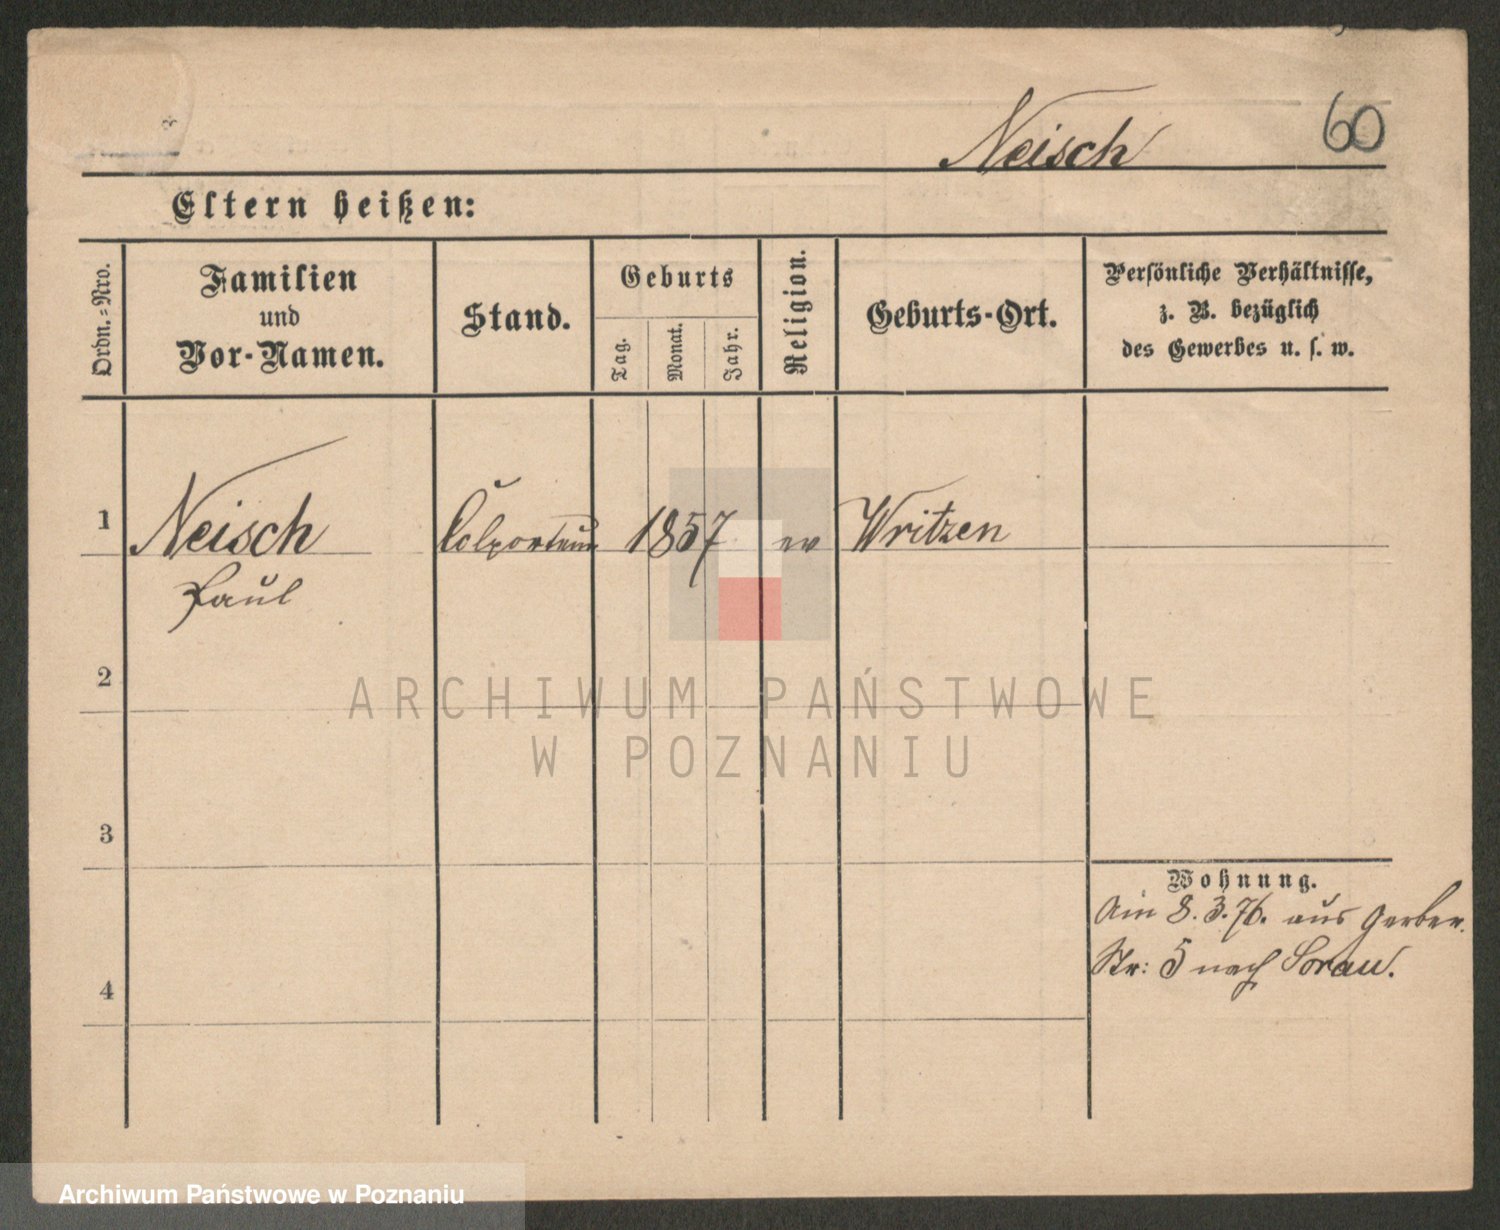 Neisch
60
Eltern heißen:
Ordn.-Nro.
Familien
und
Vor-Namen.
Stand.
Geburts
Tag.
Monat.
Jahr.
Religion.
Geburts-Ort.
Persönliche Verhältnisse,
z. B. bezüglich
des Gewerbes u. s. w.
1
Neisch
Paul
Colporteur
1857
ev
Writzen
2
ARCHIWUM PAŃSTWOWE
W POZNANIU
3
4
Wohnung.
Am 8.3.76. aus Gerber.
Str: 5 nach Sorau.
Archiwum Państwowe w Poznaniu